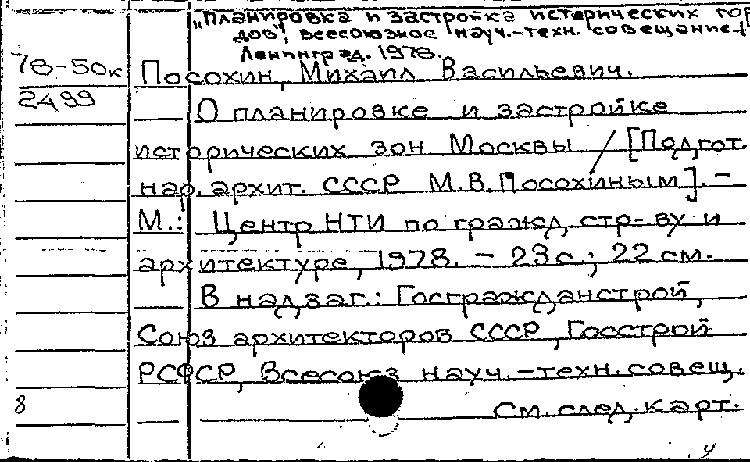 „Планировка и застройка исторических горо
дов", всесоюзное науч.-техн. совещание.
Ленинград. 1978.
78-50к Посохин, Михаил Васильевич.
2499 О планировке и застройке
исторических зон Москвы / [Подгот.
нар. архит. СССР М.В.Посохиным]. –
М.: Центр НТИ по гражд. стр-ву и
архитектуре, 1978. – 23 с.; 22 см.
В надзаг.: Госгражданстрой,
Союз архитекторов СССР, Госстрой
РСФСР, Всесоюз. науч.-техн. совещ.
8 См. след. карт.